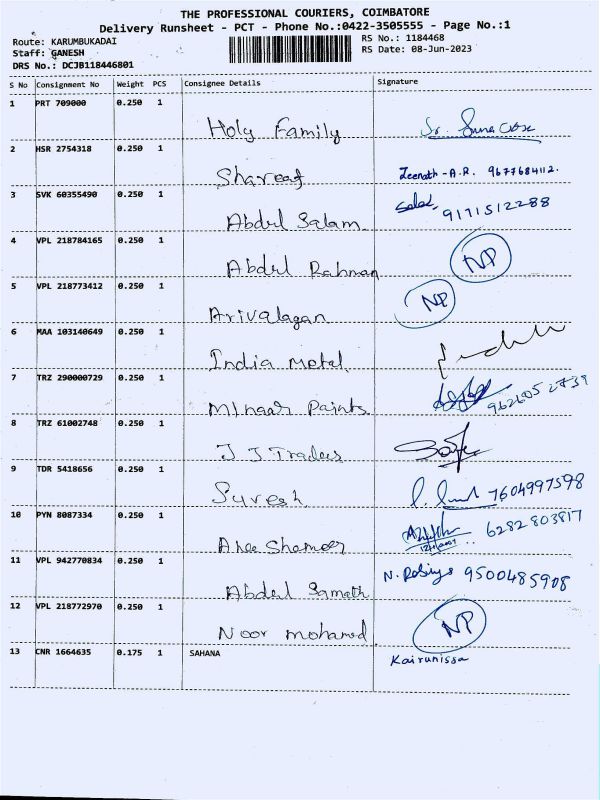 THE PROFESSIONAL COURIERS, COIMBATORE
Delivery Runsheet - PCT - Phone No.:0422-3505555 - Page No.:1
Route: KARUMBUKADAI
Staff: GANESH
DRS No.: DCJB118446801
RS No.: 1184468
RS Date: 08-Jun-2023
S No Consignment No Weight PCS Consignee Details Signature
1 PRT 709000 0.250 1 Holy Family
2 HSR 2754318 0.250 1 Shareef Zeenath - A.R. 9677684112.
3 SVK 60355490 0.250 1 Abdul Salam 9171512288
4 VPL 218784165 0.250 1 Abdul Rahman NP
5 VPL 218773412 0.250 1 Arivalagan NP
6 MAA 103140649 0.250 1 India metal
7 TRZ 290000729 0.250 1 Minaar Paints
8 TRZ 61002748 0.250 1 J J Traders
9 TDR 5418656 0.250 1 Suresh 7604997598
10 PYN 8087334 0.250 1 Shameer 6282803817
11 VPL 942770834 0.250 1 Abdul Samath N. Rabiya 9500485908
12 VPL 218772970 0.250 1 Noor mohamed NP
13 CNR 1664635 0.175 1 SAHANA Kairunissa